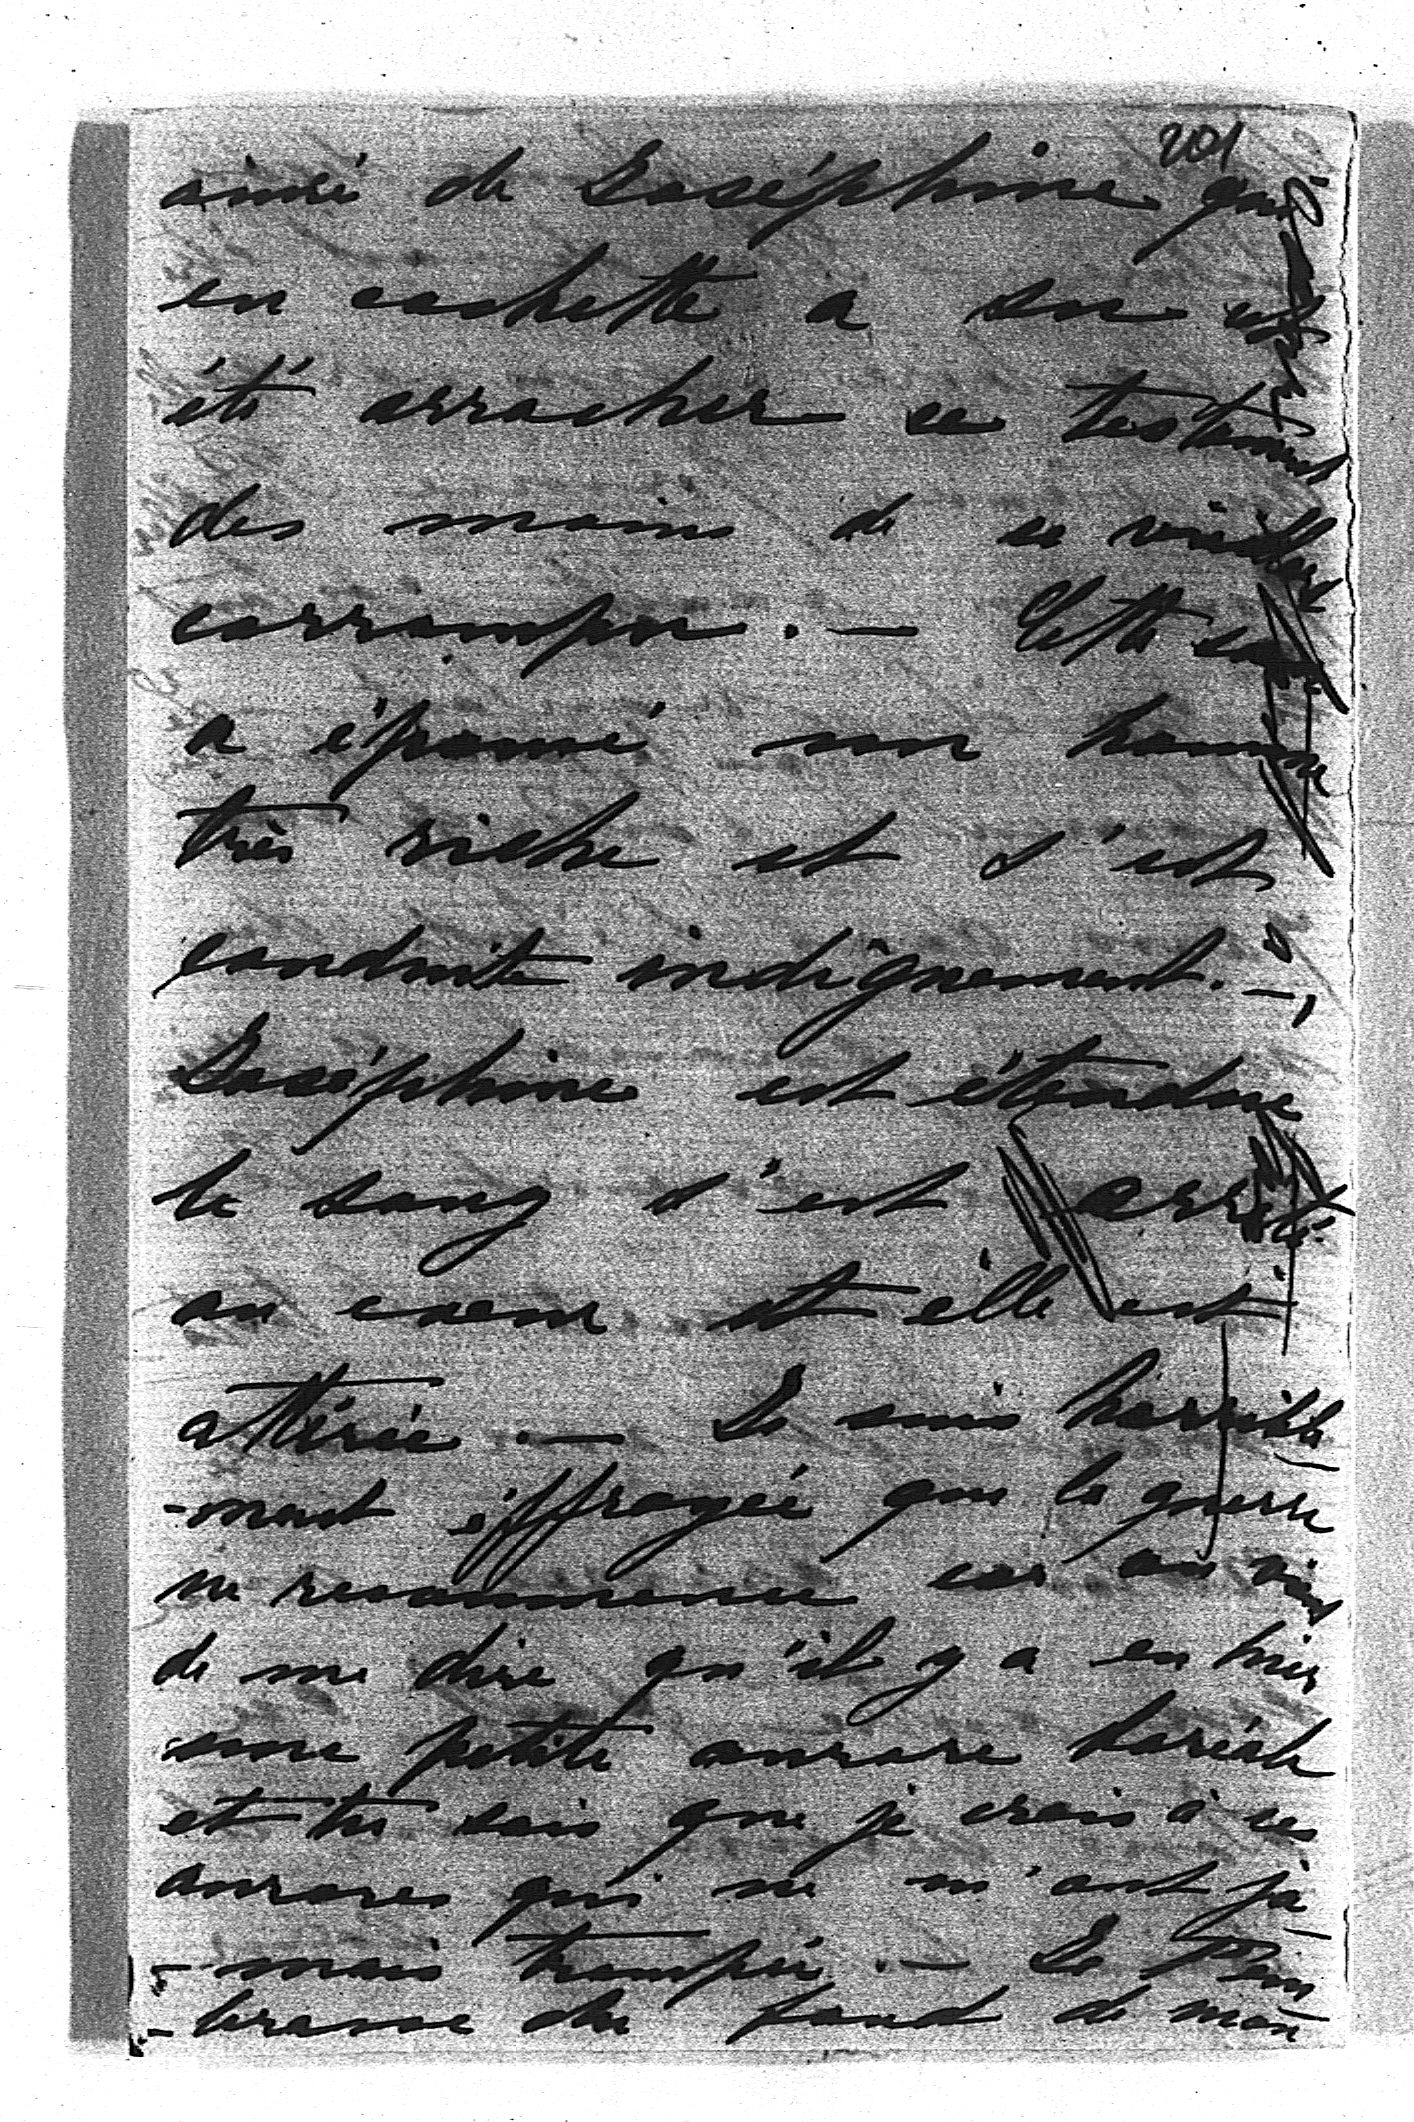 201
aimé de Joséphine qui
en cachette a su et
été arracher ce testament
des mains de ce vieillard
corrompu. — Cette
a épousé un homme
très riche et s'est
conduite indignement. —
Joséphine est étendue
le sang s'est arrêté
au coeur et elle est
attérée. — Je suis horrible
-ment effrayée que la guerre
ne recommence car on vient
de me dire qu'il y a eu hier
une petite aurore boréale
et tu sais que je crois à ces
aurores qui ne m'ont ja
-mais trompée. — Je t'em
-brasse du fond de mon